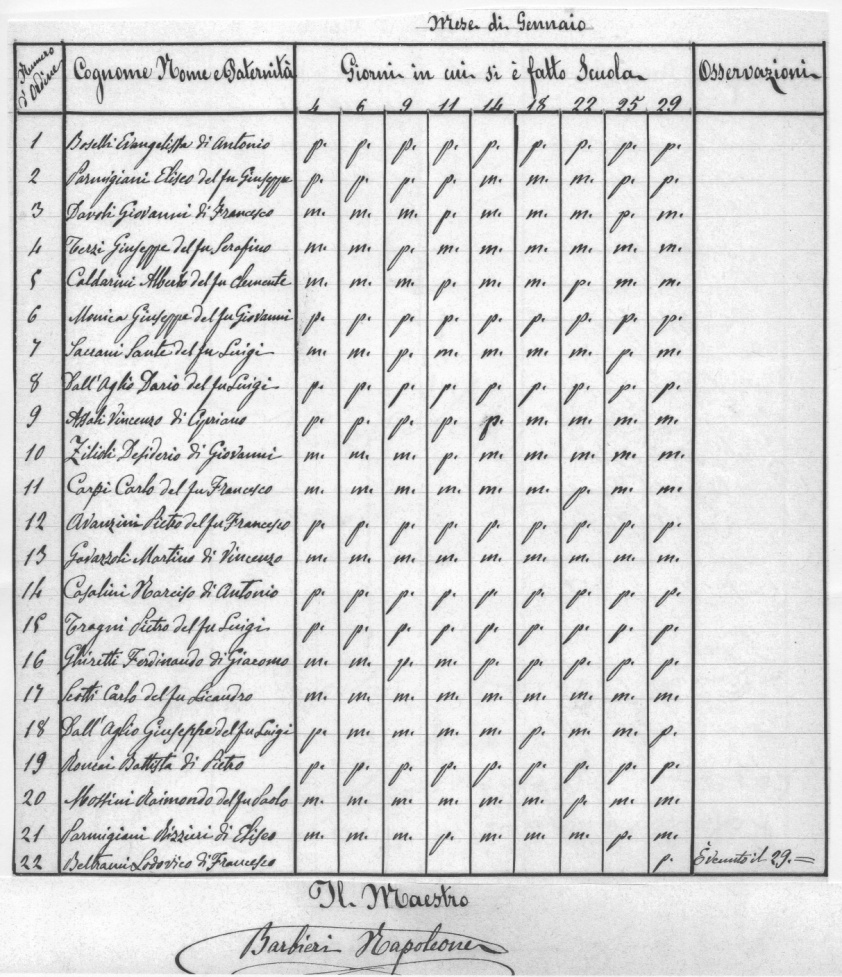 Mese di Gennaio
Numero d'Ordine Cognome Nome e Paternità Giorni in cui si è fatto Scuola Osservazioni
4 6 9 11 14 18 22 25 29
1 Boselli Evangelista di Antonio p. p. p. p. p. p. p. p. p.
2 Parmigiani Eliseo del fu Giuseppe p. p. p. p. m. m. m. p. p.
3 Davoli Giovanni di Francesco m. m. m. p. m. m. m. p. m.
4 Terzi Giuseppe del fu Serafino m. m. p. m. m. m. m. m. m.
5 Caldarini Alberto del fu Clemente m. m. m. p. m. m. p. m. m.
6 Monica Giuseppe del fu Giovanni p. p. p. p. p. p. p. p. p.
7 Saccani Sante del fu Luigi m. m. p. m. m. m. m. p. m.
8 Dall'Aglio Dario del fu Luigi p. p. p. p. p. p. p. p. p.
9 Vincenzo di Cipriano p. p. p. p. p. m. m. m. m.
10 Zilioli Desiderio di Giovanni m. m. m. p. m. m. m. m. m.
11 Carpi Carlo del fu Francesco m. m. m. m. m. m. p. m. m.
12 Avanzini Pietro del fu Francesco p. p. p. p. p. p. p. p. p.
13 Gavazzoli Martino di Vincenzo m. m. m. m. m. m. m. m. m.
14 Casalini Narciso di Antonio p. p. p. p. p. p. p. p. p.
15 Tragni Pietro del fu Luigi p. p. p. p. p. p. p. p. p.
16 Ghiretti Ferdinando di Giacomo m. m. p. m. p. p. p. p. p.
17 Scotti Carlo del fu Licandro m. m. m. m. m. m. m. m. m.
18 Dall'Aglio Giuseppe del fu Luigi p. m. m. m. m. p. m. m. p.
19 Roncai Battista di Pietro p. p. p. p. p. p. p. p. p.
20 Mossini Raimondo del fu Paolo m. m. m. m. m. m. p. m. m.
21 Parmigiani Rizzieri di Eliseo m. m. m. p. m. m. m. p. m.
22 Beltrami Lodovico di Francesco p. È venuto il 29.=
Il Maestro
Barbieri Napoleone